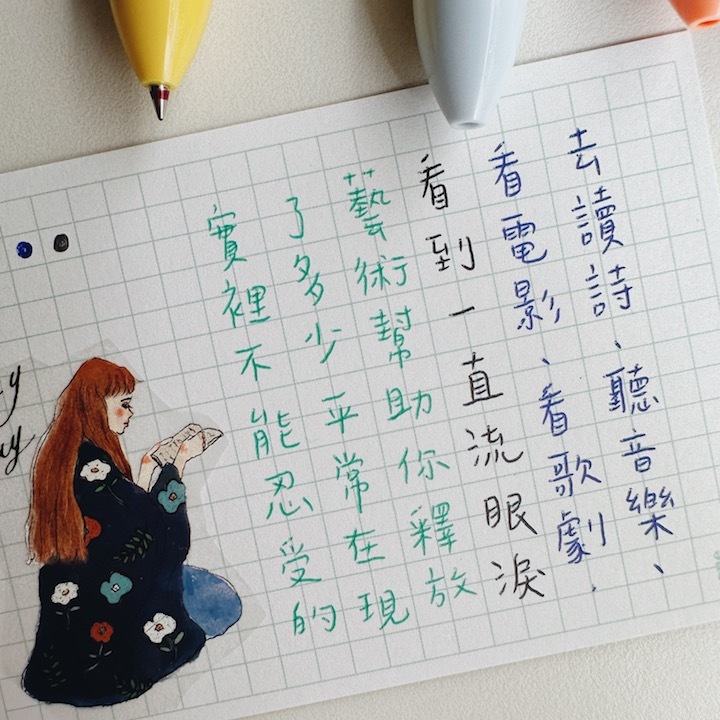 去讀詩、聽音樂、
看電影、看歌劇.
看到一直流眼淚
藝術幫助你釋放
了多少平常在現
實裡不能忍受的